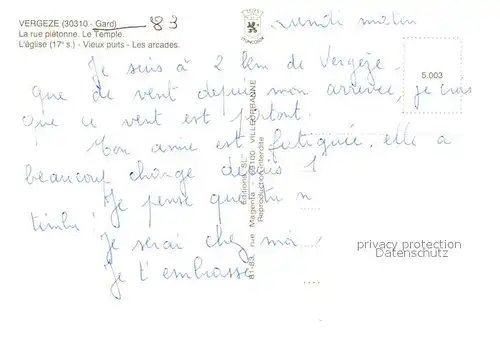 VERGEZE (30310 - Gard) 83
La rue piétonne. Le Temple.
L'église (17e s.) - Vieux puits - Les arcades.
Lundi matin
5.003
Je suis à 2 km de Vergèze.
que de vent depuis mon arrivée, je crois
que ce vent est partout.
Mon amie est fatiguée, elle a
beaucoup changé depuis 1
Je pense que tu n
timbré
Je serai chez moi
Je t'embrasse
Editions "SL" - 69100 VILLEURBANNE
81-83, rue Magenta - Reproduction interdite
privacy protection
Datenschutz